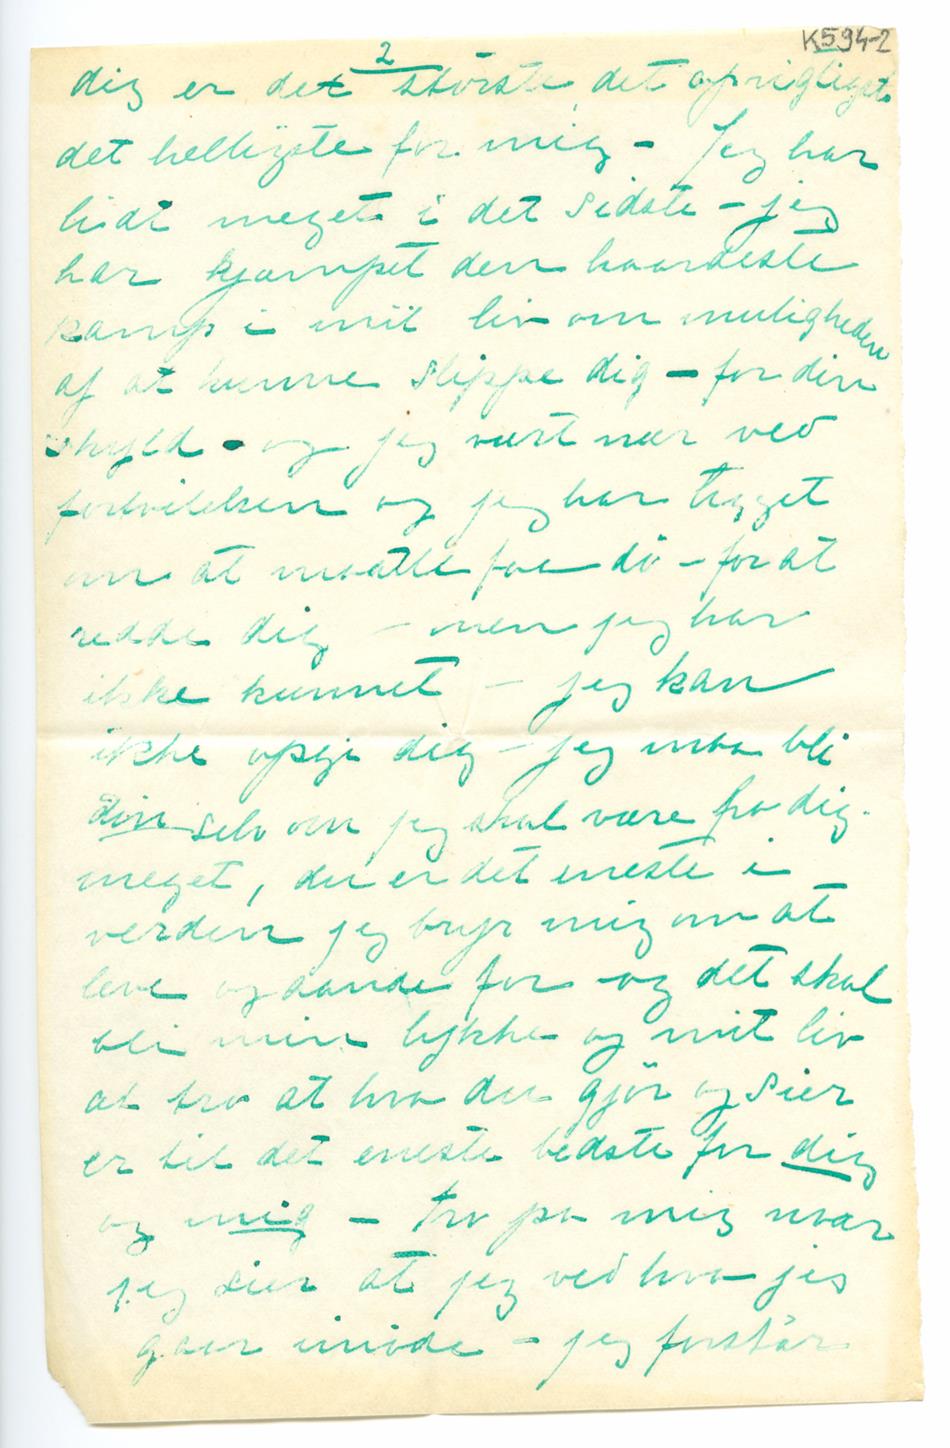 K594-2
2
dig er det største, det oprigtigste
det helligste for mig - Jeg har
lidt meget i det sidste - jeg
har kjæmpet den haardeste
kamp i mit liv om muligheden
af at kunne slippe dig - for din
skyld - og jeg vært nær ved
fortvilelsen og jeg har tigget
om at maatte faa dö - for at
redde dig - men jeg har
ikke kunnet - jeg kan
ikke opgi dig - jeg maa bli
din selv om jeg skal være fra dig
meget, du er det eneste i
verden jeg bryr mig om at
leve og aande for - og det skal
bli min lykke og mit liv
at tro at hva du gjör og sier
er til det eneste bedste for dig
og mig - tro paa mig naar
jeg sier at jeg ved hva jeg
gaar imøde - jeg forstår